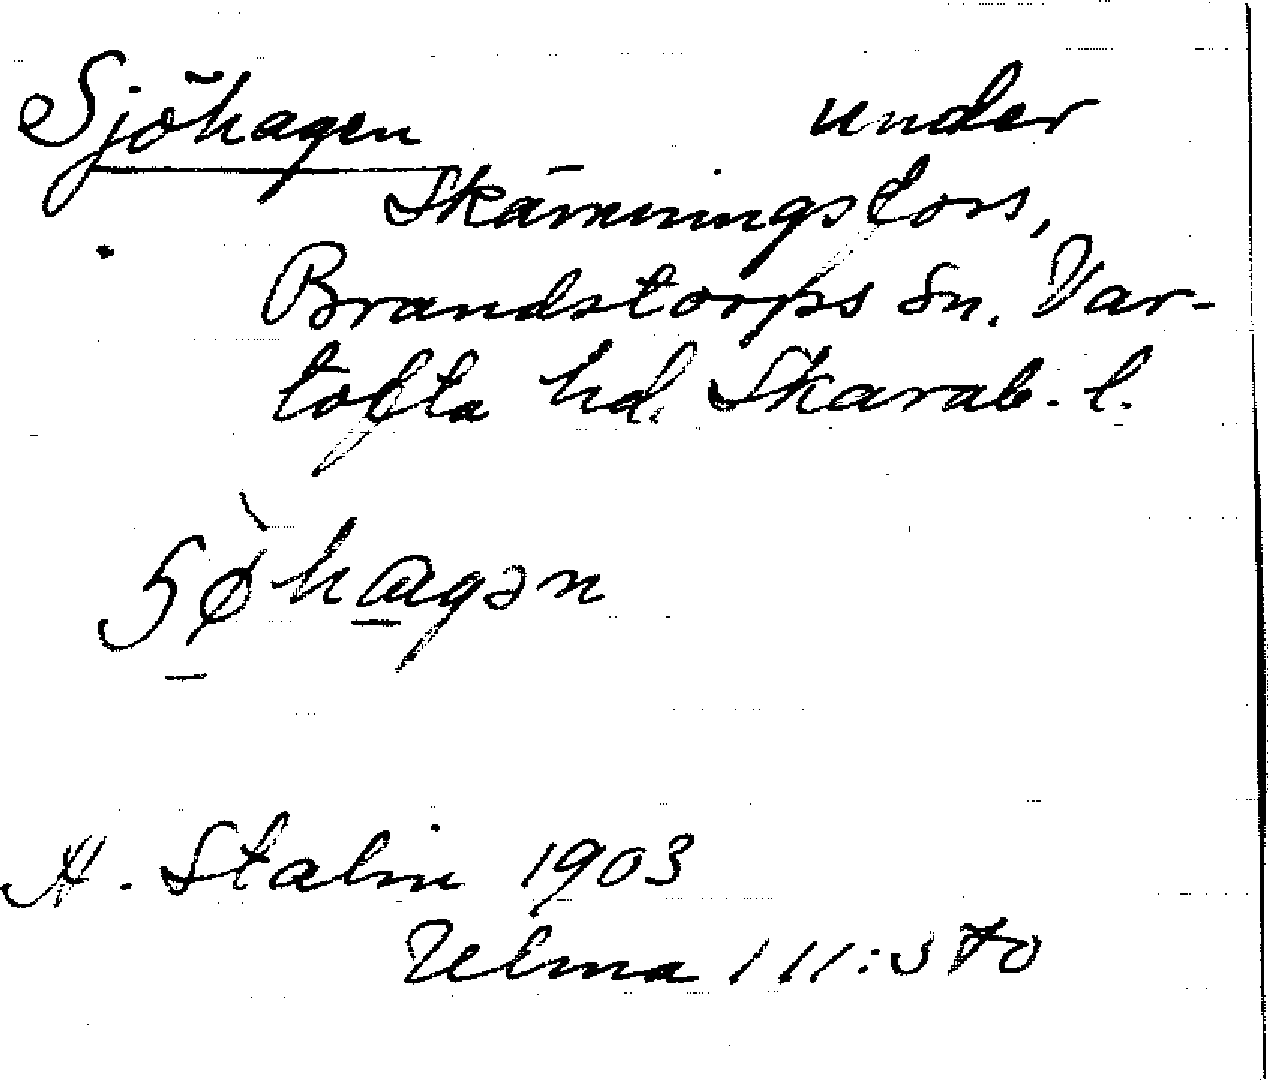 Sjöhagen under
Skämningsfors,
Brandstorps sn. Var-
tofta hd. Skarab. l.
hagən
H. Stalin 1903
Ulma 111: